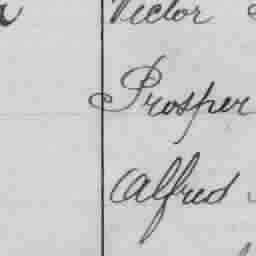 Victor
Prosper
Alfred